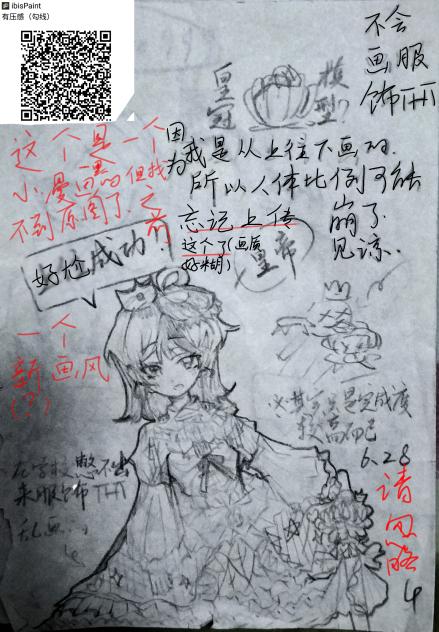 ibisPaint
有压感（勾线）
不会
画服
饰TAT
皇冠
模型?
因为我是从上往下画的
所以人体比例可能
崩了
见谅、
这个是一个
小漫画 但我找
不到原图了 之前
忘记上传
这个了(画质
好糊)
皇帝
好尬成功!
一个
新画风
(?)
6.28
在学校憋不出
来服饰TAT
乱画
请勿略